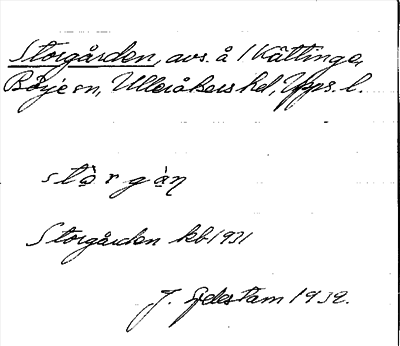 Storgården, avs. å 1 Kättinge,
Börje sn, Ulleråkers hd, Upps. l.
stò̩r gà̩ṇ
Storgården kb 1931
J. Gjdestam 1932.